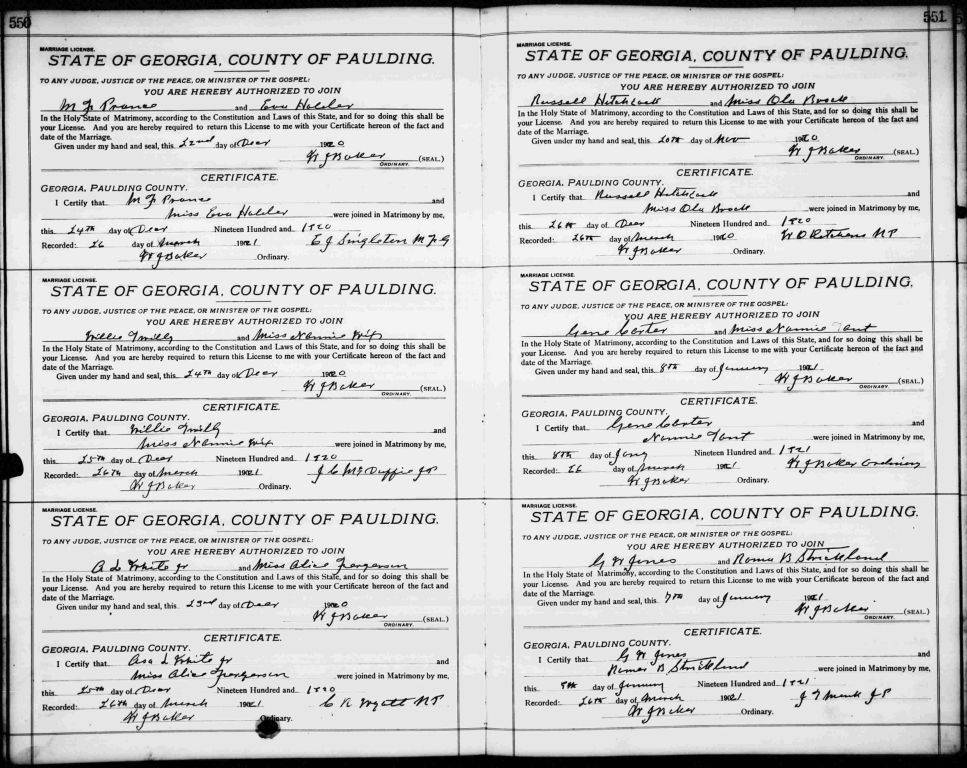 550
MARRIAGE LICENSE.
STATE OF GEORGIA, COUNTY OF PAULDING.
TO ANY JUDGE, JUSTICE OF THE PEACE, OR MINISTER OF THE GOSPEL:
YOU ARE HEREBY AUTHORIZED TO JOIN
M F Prance and Eva Holder
In the Holy State of Matrimony, according to the Constitution and Laws of this State, and for so doing this shall be
your License. And you are hereby required to return this License to me with your Certificate hereon of the fact and
date of the Marriage.
Given under my hand and seal, this 22nd day of Decr 1920
W J Baker (SEAL.)
ORDINARY.
CERTIFICATE.
GEORGIA, PAULDING COUNTY.
I Certify that M F Prance and
Miss Eva Holder were joined in Matrimony by me,
this 24th day of Decr Nineteen Hundred and 1920
Recorded: 26 day of March 1921 E J Singleton M.F.G
W J Baker Ordinary.
MARRIAGE LICENSE.
STATE OF GEORGIA, COUNTY OF PAULDING.
TO ANY JUDGE, JUSTICE OF THE PEACE, OR MINISTER OF THE GOSPEL:
YOU ARE HEREBY AUTHORIZED TO JOIN
Willie and Miss Nannie
In the Holy State of Matrimony, according to the Constitution and Laws of this State, and for so doing this shall be
your License. And you are hereby required to return this License to me with your Certificate hereon of the fact and
date of the Marriage.
Given under my hand and seal, this 24th day of Decr 1920
W J Baker (SEAL.)
ORDINARY.
CERTIFICATE.
GEORGIA, PAULDING COUNTY.
I Certify that Willie and
Miss Nannie were joined in Matrimony by me,
this 25th day of Decr Nineteen Hundred and 1920
Recorded: 26th day of March 1921 J C McDuffie J P
W J Baker Ordinary.
MARRIAGE LICENSE.
STATE OF GEORGIA, COUNTY OF PAULDING.
TO ANY JUDGE, JUSTICE OF THE PEACE, OR MINISTER OF THE GOSPEL:
YOU ARE HEREBY AUTHORIZED TO JOIN
A L White Jr and Miss Alice Fergerson
In the Holy State of Matrimony, according to the Constitution and Laws of this State, and for so doing this shall be
your License. And you are hereby required to return this License to me with your Certificate hereon of the fact and
date of the Marriage.
Given under my hand and seal, this 23rd day of Decr 1920
W J Baker (SEAL.)
ORDINARY.
CERTIFICATE.
GEORGIA, PAULDING COUNTY.
I Certify that Asa L White Jr and
Miss Alice Fergerson were joined in Matrimony by me,
this 25th day of Decr Nineteen Hundred and 1920
Recorded: 26th day of March 1921 C R Wyatt N P
W J Baker Ordinary.
551
MARRIAGE LICENSE.
STATE OF GEORGIA, COUNTY OF PAULDING.
TO ANY JUDGE, JUSTICE OF THE PEACE, OR MINISTER OF THE GOSPEL:
YOU ARE HEREBY AUTHORIZED TO JOIN
Russell Hitchcock and Miss Ola Brock
In the Holy State of Matrimony, according to the Constitution and Laws of this State, and for so doing this shall be
your License. And you are hereby required to return this License to me with your Certificate hereon of the fact and
date of the Marriage.
Given under my hand and seal, this 20th day of Nov 1920
W J Baker (SEAL.)
ORDINARY.
CERTIFICATE.
GEORGIA, PAULDING COUNTY.
I Certify that Russell Hitchcock and
Miss Ola Brock were joined in Matrimony by me,
this 26th day of Decr Nineteen Hundred and 1920
Recorded: 26th day of March 1920 W O N P
W J Baker Ordinary.
MARRIAGE LICENSE.
STATE OF GEORGIA, COUNTY OF PAULDING.
TO ANY JUDGE, JUSTICE OF THE PEACE, OR MINISTER OF THE GOSPEL:
YOU ARE HEREBY AUTHORIZED TO JOIN
Gene Carter and Miss Nannie Tant
In the Holy State of Matrimony, according to the Constitution and Laws of this State, and for so doing this shall be
your License. And you are hereby required to return this License to me with your Certificate hereon of the fact and
date of the Marriage.
Given under my hand and seal, this 8th day of January 1921
W J Baker (SEAL.)
ORDINARY.
CERTIFICATE.
GEORGIA, PAULDING COUNTY.
I Certify that Gene Carter and
Nannie Tant were joined in Matrimony by me,
this 8th day of Jany Nineteen Hundred and 1921
Recorded: 26 day of March 1921 W J Baker Ordinary
W J Baker Ordinary.
MARRIAGE LICENSE.
STATE OF GEORGIA, COUNTY OF PAULDING.
TO ANY JUDGE, JUSTICE OF THE PEACE, OR MINISTER OF THE GOSPEL:
YOU ARE HEREBY AUTHORIZED TO JOIN
G W Jones and Roma B Strickland
In the Holy State of Matrimony, according to the Constitution and Laws of this State, and for so doing this shall be
your License. And you are hereby required to return this License to me with your Certificate hereon of the fact and
date of the Marriage.
Given under my hand and seal, this 7th day of January 1921
W J Baker (SEAL.)
ORDINARY.
CERTIFICATE.
GEORGIA, PAULDING COUNTY.
I Certify that G W Jones and
Roma B Strickland were joined in Matrimony by me,
this 9th day of January Nineteen Hundred and 1921
Recorded: 26th day of March 1921 J P
W J Baker Ordinary.